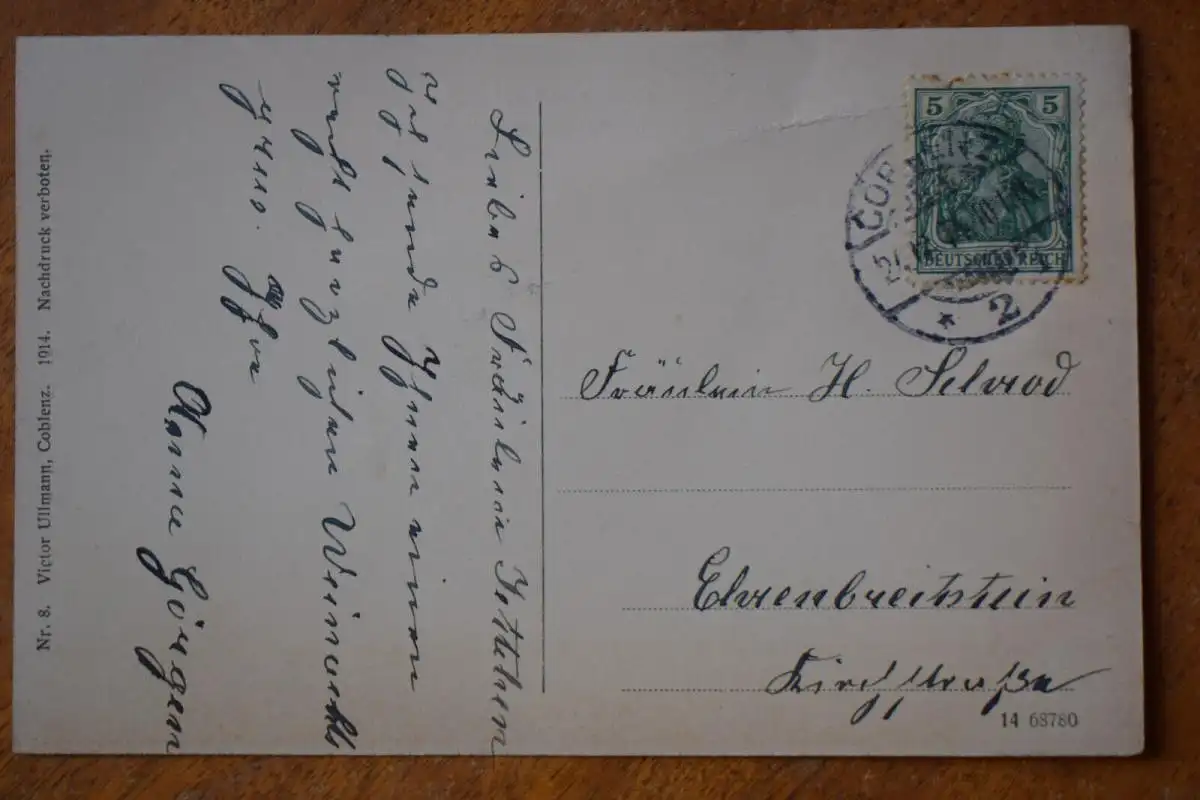 Nr. 8. Victor Ullmann, Coblenz. 1914. Nachdruck verboten.
Liebes Fräulein Jettchen
Ich sende Ihnen einen
recht herzlichen Weinachts
gruss. Ihre
Anna Görgen
5 5
DEUTSCHES REICH
COBLENZ
* 2
Fräulein H. Schrod
Ehrenbreitstein
Kirchstraße
14 68780